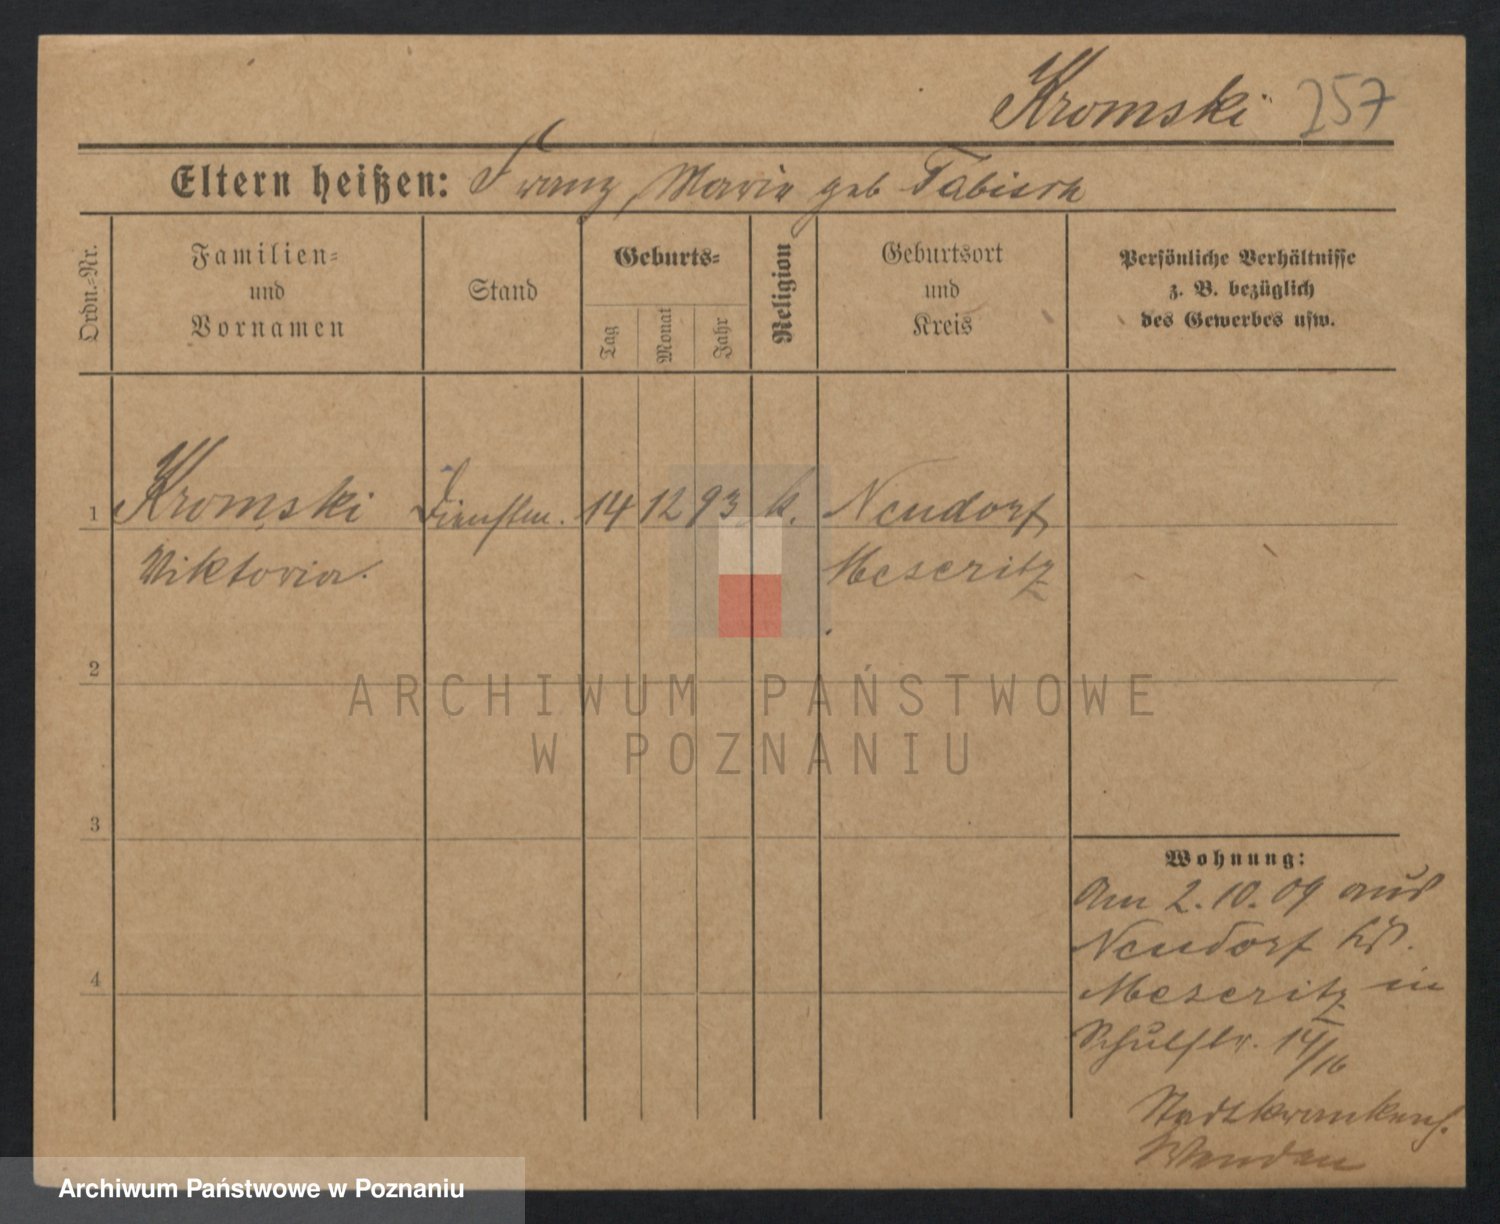 Kromski 257
Eltern heißen: Franz, Marie geb Tabisch
Ordn.-Nr.
Familien-
und
Vornamen
Stand
Geburts-
Tag
Monat
Jahr
Religion
Geburtsort
und
Kreis
Persönliche Verhältnisse
z. B. bezüglich
des Gewerbes usw.
1 Kromski Dienstm. 14 12 93 k. Neudorf
Viktoria. Meseritz
2
ARCHIWUM PAŃSTWOWE
W POZNANIU
3
Wohnung:
Am 2.10.09 aus
Neudorf Krs.
4
Meseritz in
Schulstr. 14/16
Stadtkrankenh.
Archiwum Państwowe w Poznaniu